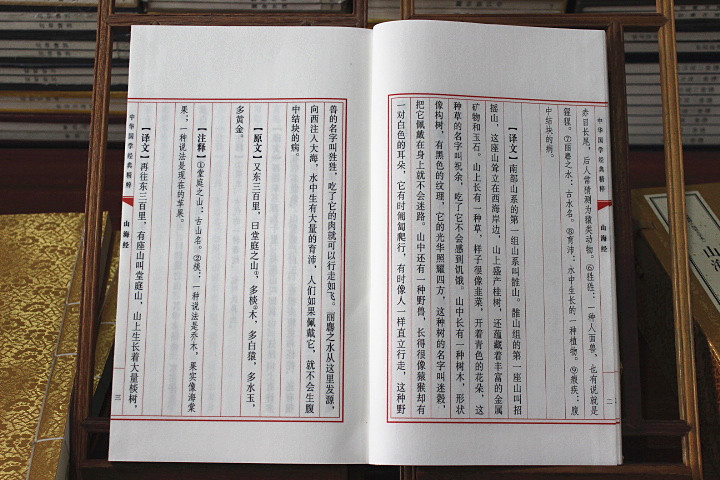 中华国学经典精粹
山海经
二
赤目长尾，后人常猜测为猿类动物。⑥狌狌：一种人面兽，也有说就是
猩猩。⑦丽麂之水：古水名。⑧育沛：水中生长的一种植物。⑨瘕疾：腹
中结块的病。
【译文】南部山系的第一组山系叫䧿山。䧿山组的第一座山叫招
摇山，这座山耸立在西海岸边，山上盛产桂树，还蕴藏着丰富的金属
矿物和玉石。山上长有一种草，样子很像韭菜，开着青色的花朵，这
种草的名字叫祝余，吃了它不会感到饥饿。山中长有一种树木，形状
像构树，有黑色的纹理，它的光华照耀四方，这种树的名字叫迷榖，
把它佩戴在身上就不会迷路。山中还有一种野兽，长得很像猿猴却有
一对白色的耳朵，它有时匍匐爬行，有时像人一样直立行走，这种野
兽的名字叫狌狌，吃了它的肉就可以行走如飞。丽麂之水从这里发源，
向西注入大海，水中生有大量的育沛，人们如果佩戴它，就不会生腹
中结块的病。
【原文】又东三百里，曰堂庭之山①，多棪②木，多白猿，多水玉，
多黄金。
【注释】①堂庭之山：古山名。②棪：一种说法是乔木，果实像海棠
果；一种说法是现在的苹果。
【译文】再往东三百里，有座山叫堂庭山，山上生长着大量棪树，
中华国学经典精粹
山海经
三
山